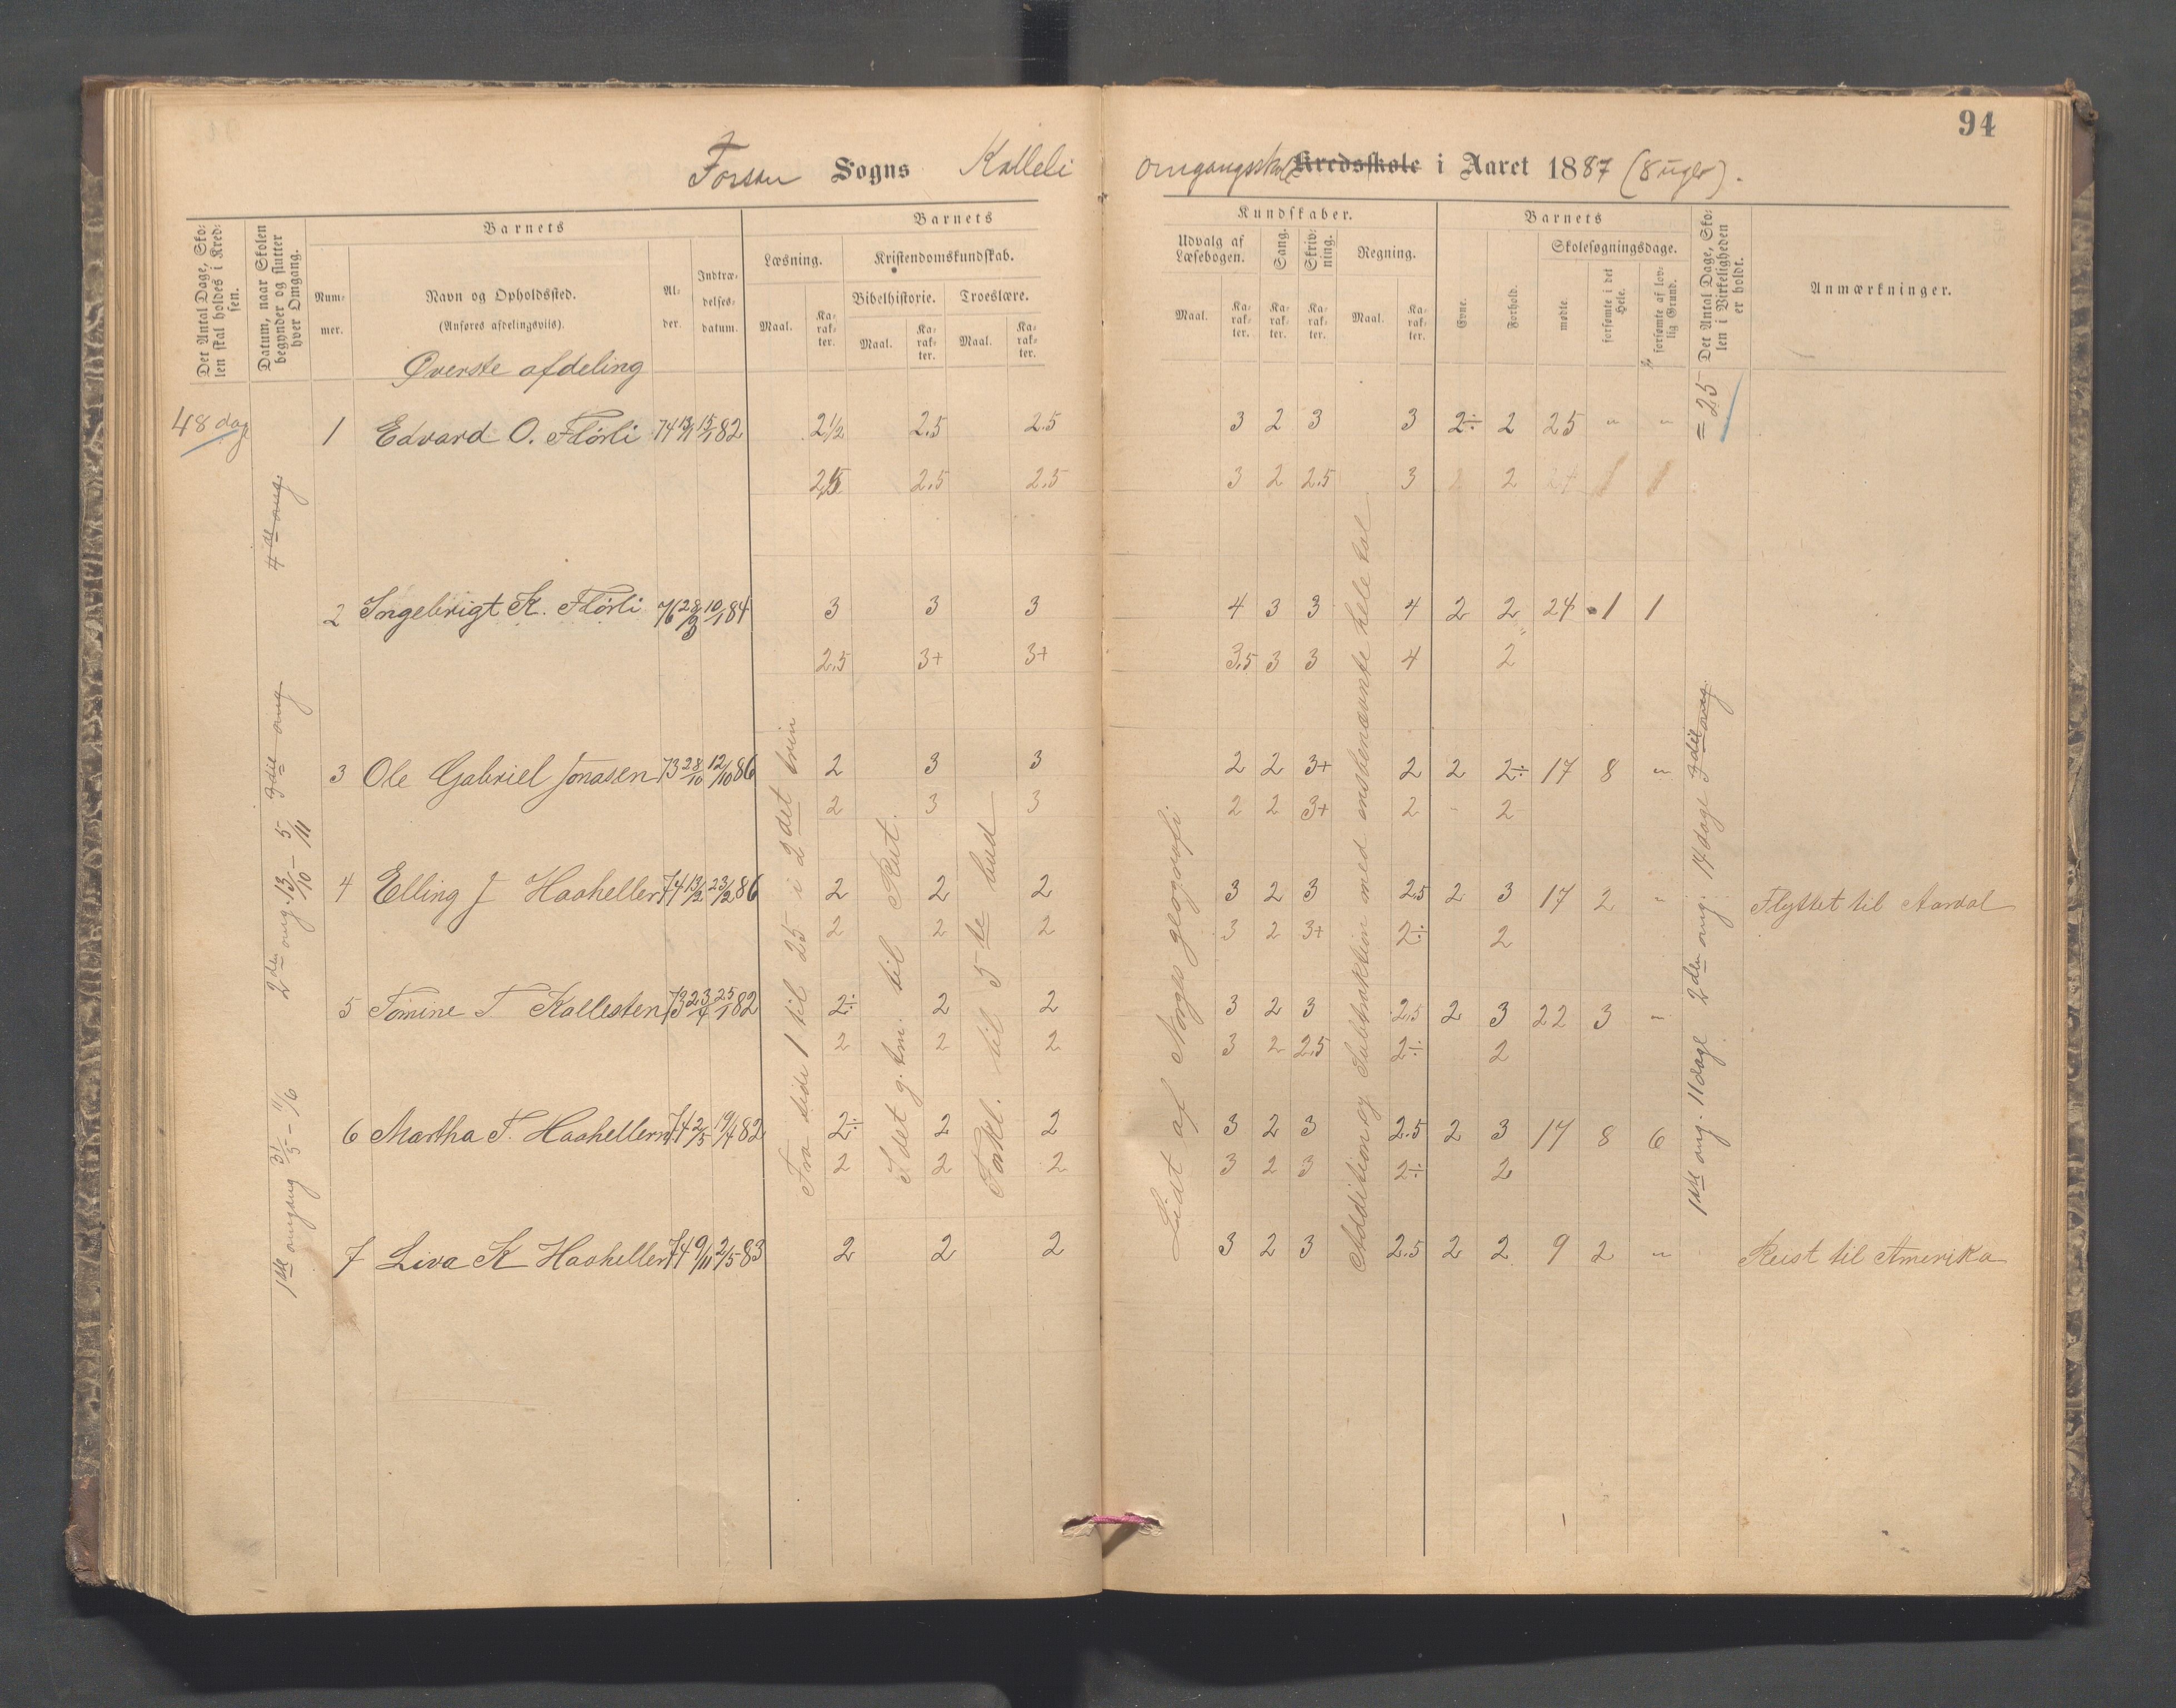 94
Forsan Sogns Kalleli omgangsskole Kredsskole i Aaret 1887 (8 uger).
Det Antal Dage, Skolen skal holdes i Kredsen.
Datum, naar Skolen begynder og slutter hver Omgang.
Barnets
Nummer.
Navn og Opholdssted.
(Anføres afdelingsviis).
Alder.
Indtrædelsesdatum.
Barnets Kundskaber.
Læsning.
Maal. Karakter.
Kristendomskundskab.
Bibelhistorie. Troeslære.
Maal. Karakter. Maal. Karakter.
Udvalg af Læsebogen.
Maal. Karakter.
Sang.
Karakter.
Skrivning.
Karakter.
Regning.
Maal. Karakter.
Barnets
Evne.
Forhold.
Skolesøgningsdage.
mødte
forsømte i det Hele.
forsømte af lovlig Grund.
Det Antal Dage, Skolen i Virkeligheden er holdt.
Anmærkninger.
Øverste afdeling
48 dag
1 Edvard O. Flörli 74 13/11 15/1 82 2½ 2.5 2.5 3 2 3 3 2÷ 2 25 " " = 25
2,5 2.5 2.5 3 2 2.5 3 2
2 Ingebrigt K. Flörli 76 28/3 10/1 84 3 3 3 4 3 3 4 2 2 24 1 1
2.5 3+ 3+ 3.5 3 3 4 2
3 Ole Gabriel Jonasen 73 28/10 12/10 86 2 3 3 2 2 3+ 2 2 2÷ 17 8 "
2 3 3 2 2 3+ 2 - 2
4 Elling J Haaheller 74 13/2 23/2 86 2 2 2 3 2 3 2.5 2 3 17 2 " Flyttet til Aardal
2 2 2 3 2 3+ 2÷ 2
5 Tomine T Kallesten 73 23/4 25/1 82 2÷ 2 2 3 2 3 2.5 2 3 22 3 "
2 2 2 3 2 2.5 2÷ 2
6 Martha T. Haahellern 74 2/5 19/4 82 2÷ 2 2 3 2 3 2.5 2 3 17 8 6
2 2 2 3 2 3 2÷ 2
7 Liva K Haaheller 74 9/11 2/5 83 2 2 2 3 2 3 2.5 2 2 9 2 " Reist til Amerika
1ste omgang 31/5 - 11/6
2den omg. 13/10 - 5/11
3die omg
4de omg.
Fra side 1 til 25 i 2det trin
I det g. tm. til Rut.
Forkl. til 5te bud
Lidt af Norges geografi
Addition og Subtraktion med ensbenævnte hele tal
1ste omg. 11 dage 2den omg. 14 dage 3die omg.